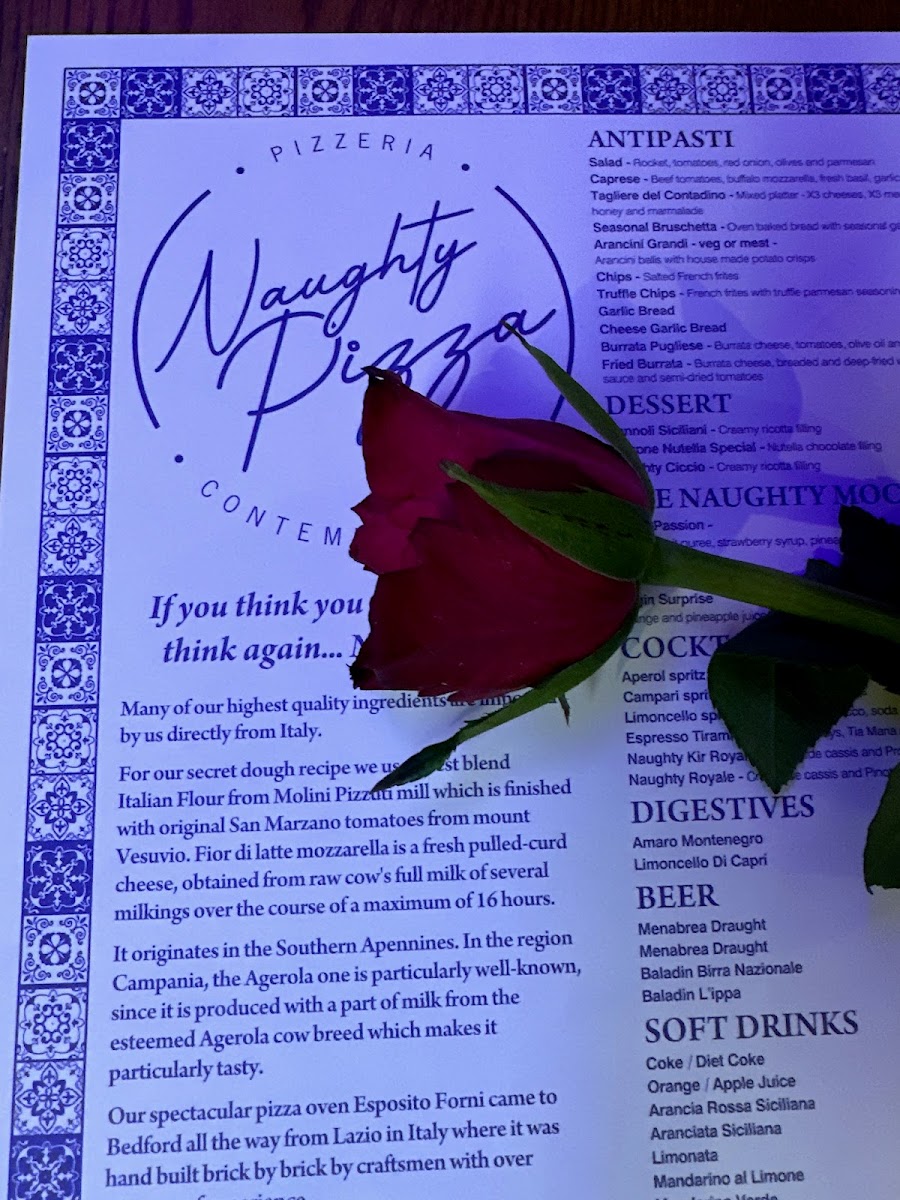 PIZZERIA
Naughty
Pizza
CONTEM
If you think you
think again...
Many of our highest quality ingredients are
by us directly from Italy.
For our secret dough recipe we blend
Italian Flour from Molini Pizzuti mill which is finished
with original San Marzano tomatoes from mount
Vesuvio. Fior di latte mozzarella is a fresh pulled-curd
cheese, obtained from raw cow's full milk of several
milkings over the course of a maximum of 16 hours.
It originates in the Southern Apennines. In the region
Campania, the Agerola one is particularly well-known,
since it is produced with a part of milk from the
esteemed Agerola cow breed which makes it
particularly tasty.
Our spectacular pizza oven Esposito Forni came to
Bedford all the way from Lazio in Italy where it was
hand built brick by brick by craftsmen with over
ANTIPASTI
Salad - Rocket, tomatoes, red onion, olives and parmesan
Caprese - Beef tomatoes, buffalo mozzarella, fresh basil, garlic
Tagliere del Contadino - Mixed platter - X3 cheeses, X3
honey and marmalade
Seasonal Bruschetta - Oven baked bread with seasonal
Arancini Grandi - veg or meat -
Arancini balls with house made potato crisps
Chips - Salted French fries
Truffle Chips - French fries with truffle parmesan seasoning
Garlic Bread
Cheese Garlic Bread
Burrata Pugliese - Burrata cheese, tomatoes, olive oil
Fried Burrata - Burrata cheese, breaded and deep-fried
sauce and semi-dried tomatoes
DESSERT
nnoli Siciliani - Creamy ricotta filling
one Nutella Special - Nutella chocolate filling
hty Ciccio - Creamy ricotta filling
E NAUGHTY MOC
Passion -
puree, strawberry syrup,
in Surprise
nge and pineapple juice
COCKT
Aperol spritz
Campari spri
Limoncello sp co, soda
Espresso Tiram ys, Tia Maria
Naughty Kir Royal de cassis and
Naughty Royale - cassis and
DIGESTIVES
Amaro Montenegro
Limoncello Di Capri
BEER
Menabrea Draught
Menabrea Draught
Baladin Birra Nazionale
Baladin L'ippa
SOFT DRINKS
Coke / Diet Coke
Orange / Apple Juice
Arancia Rossa Siciliana
Aranciata Siciliana
Limonata
Mandarino al Limone